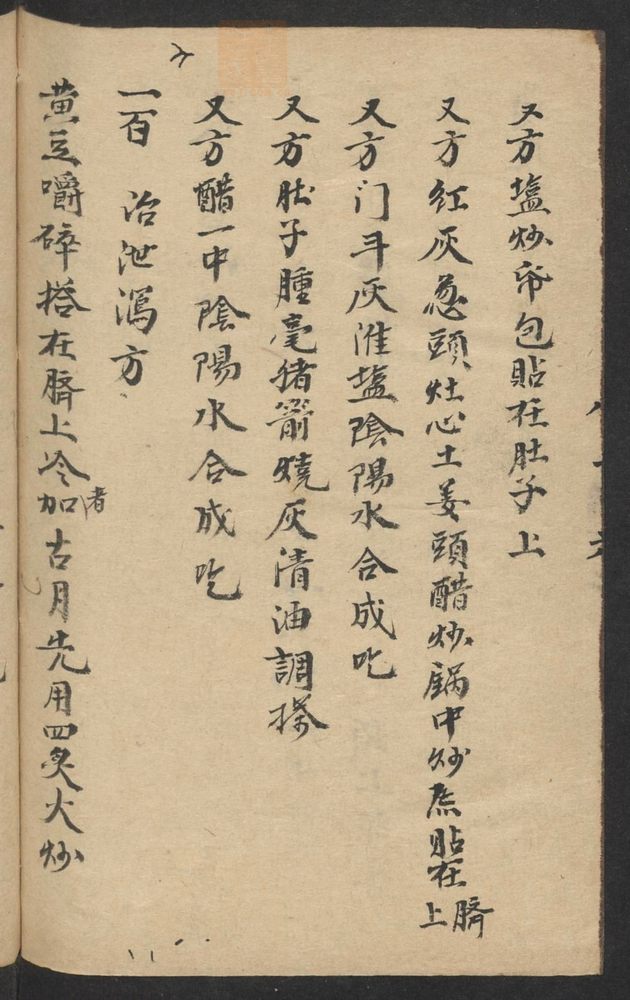 又方塩炒布包貼在肚子上
又方紅灰葱頭灶心土姜頭醋炒鍋中炒焦貼在臍上
又方门斗灰淮塩陰陽水合成吃
又方肚子腫毫猪箭燒灰清油調搽
又方醋一中陰陽水合成吃
一百 治泄瀉方
黄豆嚼碎搭在臍上冷者加古月先用四炙火炒